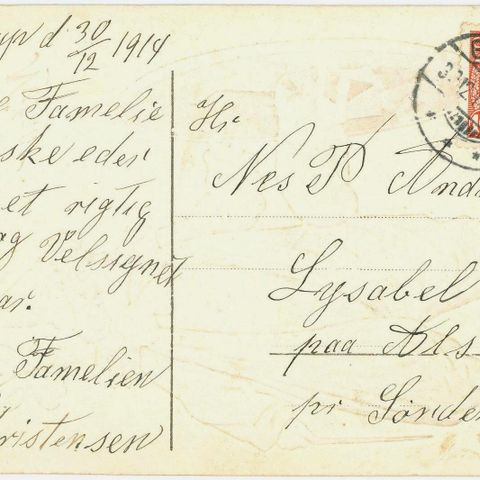 d 30/12 1914
Famelie
ske eder
et rigtig
ag Velsignet
ar.
Famelien
ristensen
Hr
Nes P And
Lysabel
paa Als
pr Sønde